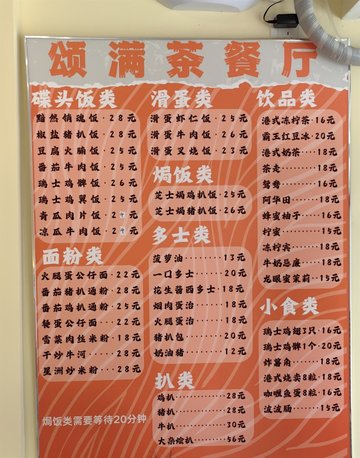 颂满茶餐厅
碟头饭类
黯然销魂饭·28元
椒盐猪扒饭·28元
豆腐火腩饭·25元
番茄牛肉饭·25元
瑞士鸡髀饭·26元
瑞士鸡翼饭·25元
青瓜肉片饭·2
凉瓜牛肉饭·2
面粉类
火腿蛋公仔面··22元
番茄猪扒通粉··28元
番茄鸡扒通粉··25元
餐蛋公仔面····22元
雪菜肉丝米粉··18元
干炒牛河····28元
星洲炒米粉···28元
焗饭类需要等待20分钟
滑蛋类
滑蛋虾仁饭·25元
滑蛋牛肉饭·26元
滑蛋叉烧饭·23元
焗饭类
芝士焗鸡扒饭·25元
芝士焗猪扒饭·26元
多士类
菠萝油······13元
一口多士·····20元
花生酱西多士··18元
烟肉蛋治·····18元
火腿蛋治·····18元
猪扒包······20元
奶油猪······12元
扒类
鸡扒········28元
猪扒········28元
牛扒········30元
大杂烩扒·····56元
饮品类
港式冻柠茶·16元
霸王红豆冰·20元
港式奶茶···18元
茶走······18元
鸳鸯······16元
阿华田·····18元
蜂蜜柚子···16元
柠蜜······15元
冻柠宾·····18元
牛奶总底···18元
龙眼蜜茉莉··15元
小食类
瑞士鸡翅3只·16元
瑞士鸡髀1个·20元
炸薯角·····18元
港式烧卖8粒·18元
咖喱鱼蛋8粒·16元
波波肠·····15元